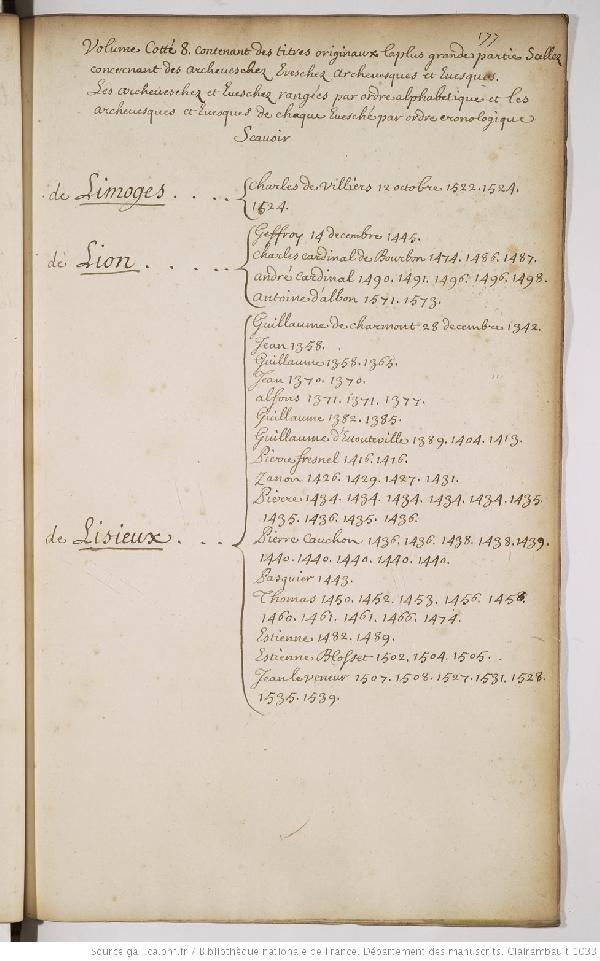 177
Volume Cotté 8. contenant des titres originaux la plus grande partie Scellez
concernant des archeveschez Eveschez archevesques et Evesques.
Les archeveschez et Eveschez rangées par ordre alphabetique et les
archevesques et Evesques de chaque Evesché par ordre cronologique
Scavoir
de Limoges . . . . . Charles de Villiers 12 octobre 1522. 1524.
1524.
Geffroy 14 decembre 1445.
de Lion . . . . . . Charles cardinal de Bourbon 1474. 1486. 1487.
andré Cardinal 1490. 1491. 1496. 1496. 1498.
antoine d'albon 1571. 1573.
Guillaume de charmont 28 decembre 1342.
Jean 1358.
Guillaume 1358. 1365.
Jean 1370. 1370.
alfons 1371. 1371. 1377.
Guillaume 1382. 1385.
Guillaume d'Estouteville 1389. 1404. 1413.
Pierre fresnel 1416. 1416.
Zanon 1426. 1429. 1427. 1431.
Pierre 1434. 1434. 1434. 1434. 1434. 1435.
1435. 1436. 1435. 1436.
de Lisieux . . . . Pierre Cauchon 1436. 1436. 1438. 1438. 1439.
1440. 1440. 1440. 1440. 1440.
Pasquier 1443.
Thomas 1450. 1452. 1453. 1456. 1458.
1460. 1461. 1461. 1466. 1474.
Estienne 1482. 1489.
Estienne Blosset 1502. 1504. 1505.
Jean le veneur 1507. 1508. 1527. 1531. 1528.
1535. 1539.
Source gallica.bnf.fr / Bibliothèque nationale de France. Département des manuscrits. Clairambault 1033